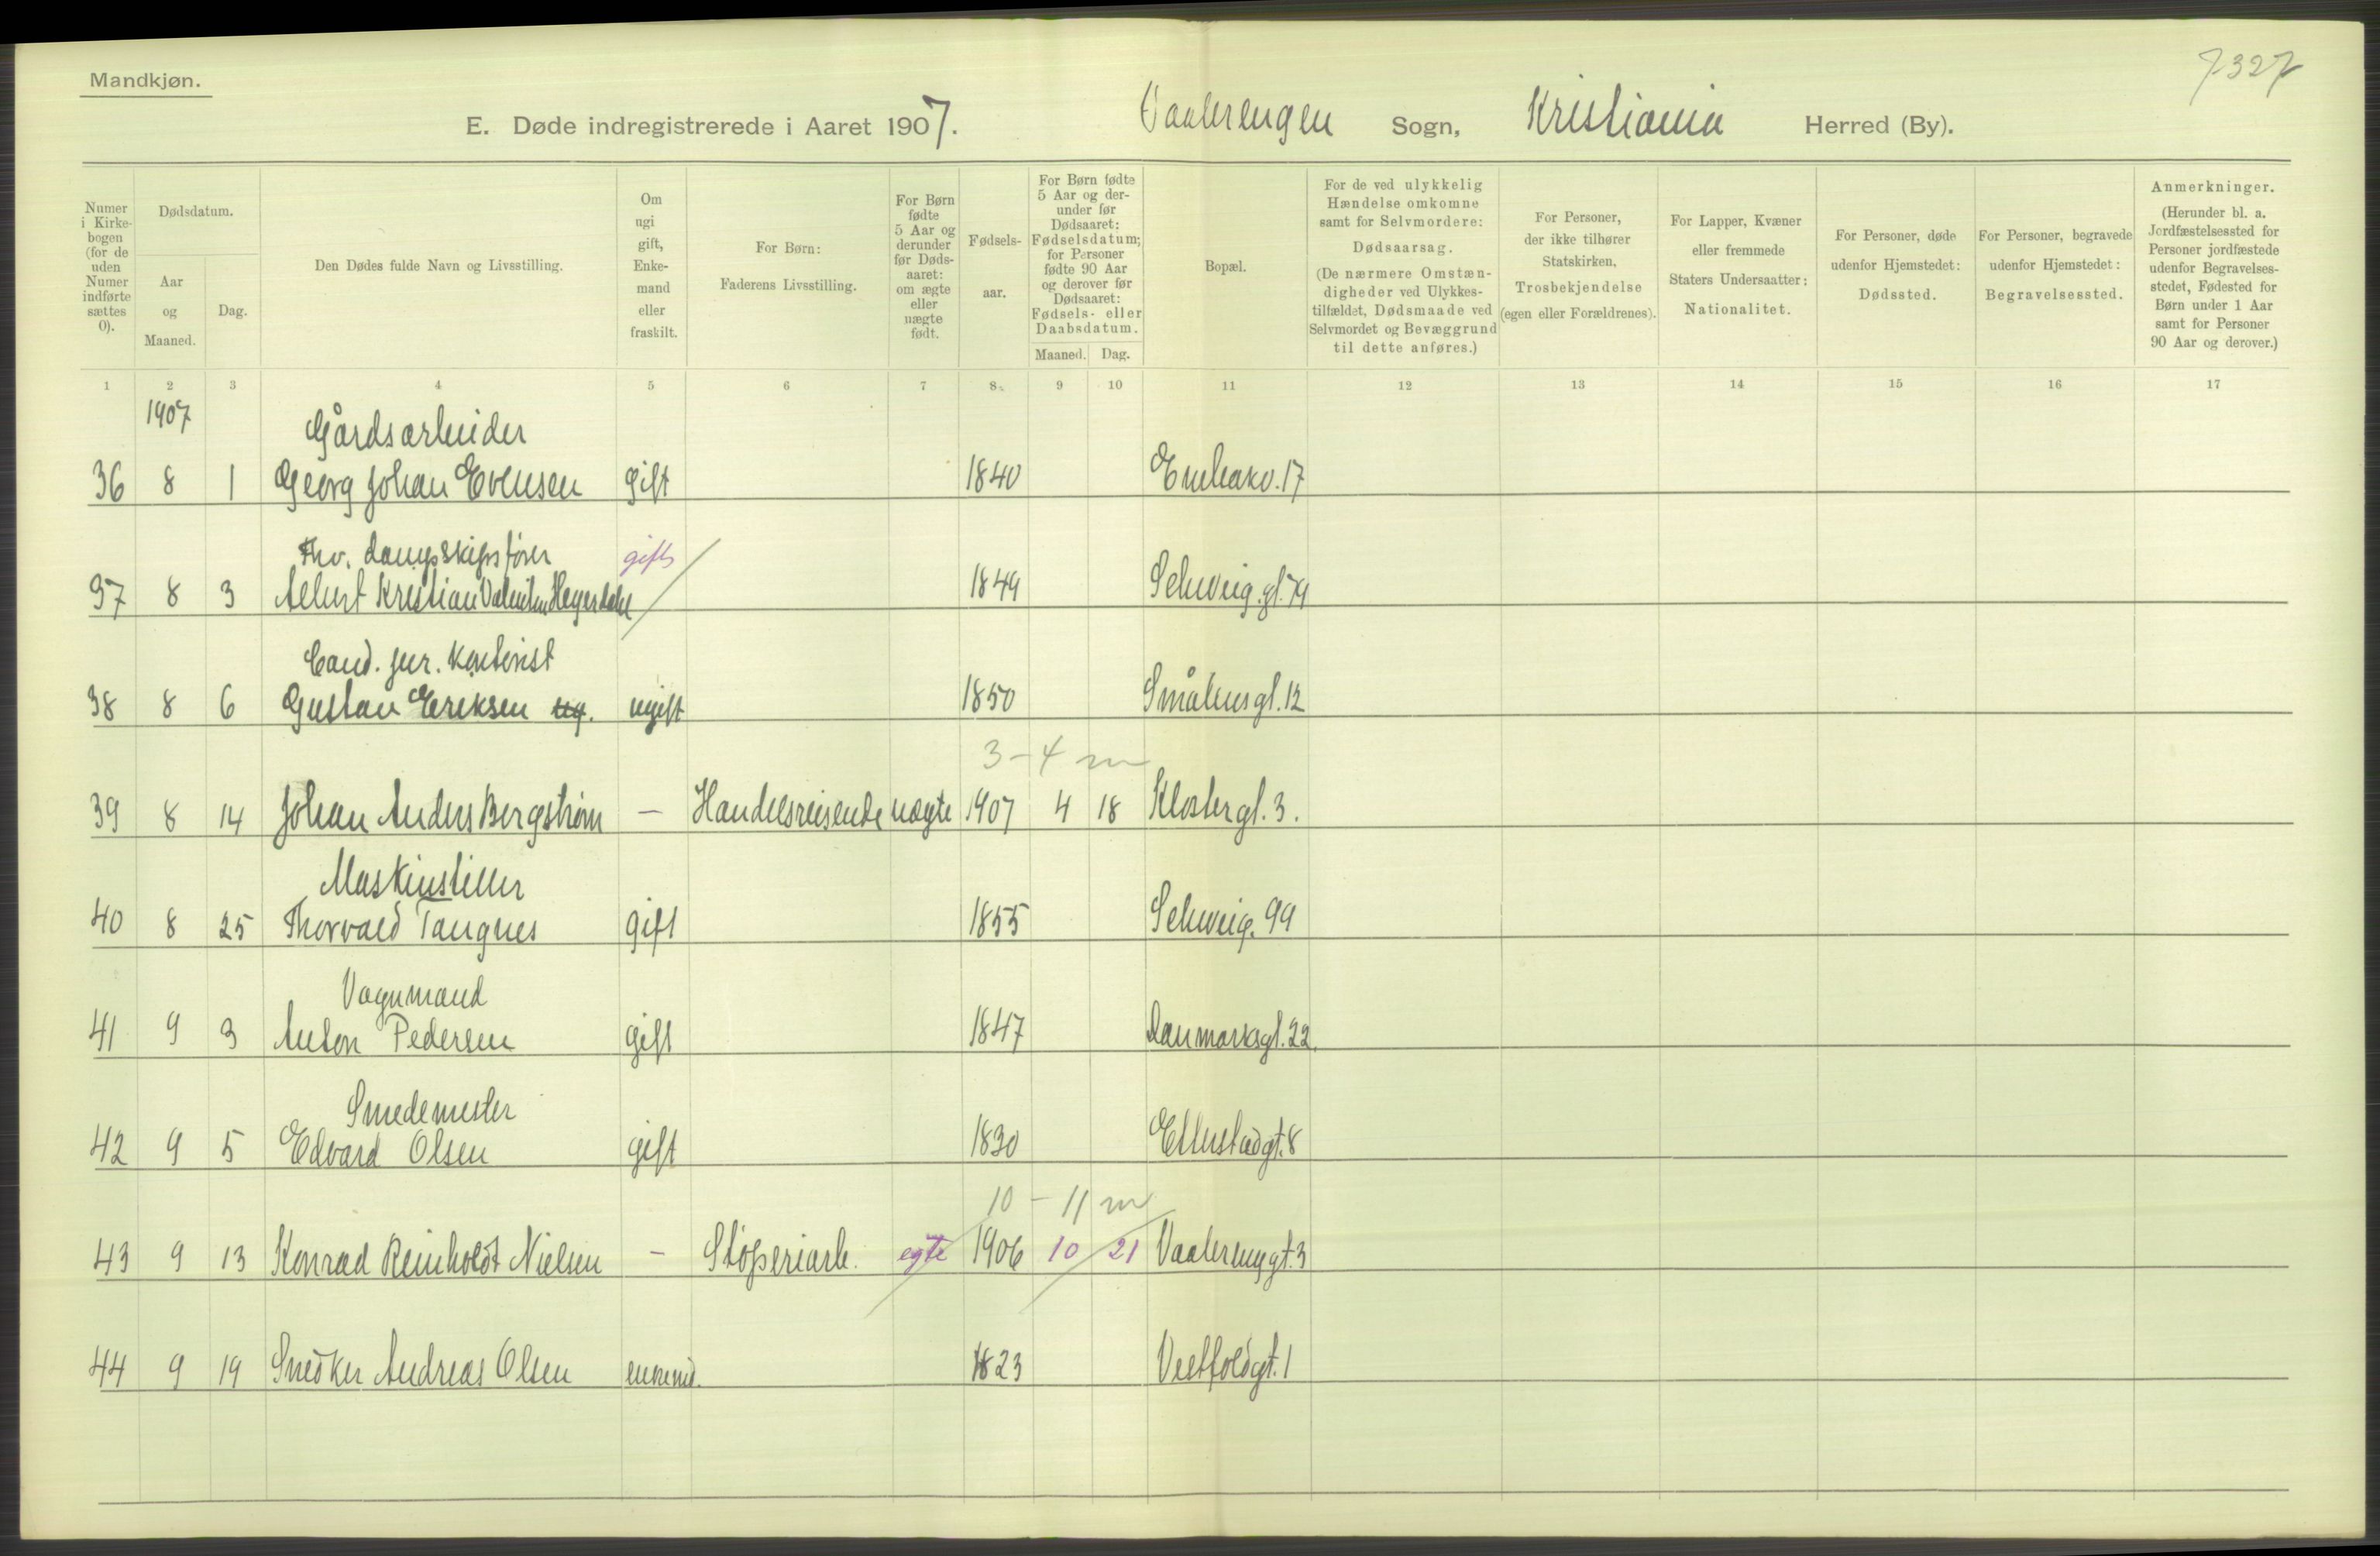 Mandkjøn.
7327
E. Døde indregistrerede i Aaret 1907. Vaalerengen Sogn, Kristiania Herred (By).
Numer i Kirkebogen (for de uden Numer indførte sættes 0).
Dødsdatum.
Aar og Maaned.
Dag.
Den Dødes fulde Navn og Livsstilling.
Om ugi gift, Enkemand eller fraskilt.
For Børn: Faderens Livsstilling.
For Børn fødte 5 Aar og derunder før Dødsaaret: om ægte eller uægte født.
Fødselsaar.
For Børn fødte 5 Aar og derunder før Dødsaaret: Fødselsdatum; for Personer fødte 90 Aar og derover før Dødsaaret: Fødsels- eller Daabsdatum.
Maaned. Dag.
Bopæl.
For de ved ulykkelig Hændelse omkomne samt for Selvmordere: Dødsaarsag. (De nærmere Omstændigheder ved Ulykkestilfældet, Dødsmaade ved Selvmordet og Bevæggrund til dette anføres.)
For Personer, der ikke tilhører Statskirken, Trosbekjendelse (egen eller Forældrenes).
For Lapper, Kvæner eller fremmede Staters Undersaatter: Nationalitet.
For Personer, døde udenfor Hjemstedet: Dødssted.
For Personer, begravede udenfor Hjemstedet: Begravelsessted.
Anmerkninger. (Herunder bl. a. Jordfæstelsessted for Personer jordfæstede udenfor Begravelsesstedet, Fødested for Børn under 1 Aar samt for Personer 90 Aar og derover.)
1 2 3 4 5 6 7 8 9 10 11 12 13 14 15 16 17
1907
Gårdsarbeider
36 8 1 Georg Johan Evensen gift 1840 Enebakv. 17
Fhv. dampskipsfører gift
37 8 3 Albert Kristian Valentin Heyerdahl 1849 Schweig. gt. 79
Cand. jur. kontorist
38 8 6 Gustav Eriksen ug. ugift 1850 Smålensgt. 12
3 - 4 m
39 8 14 Johan Anders Bergstrøm — Handelsreisende uægte 1907 4 18 Klostergt. 3.
Maskinstiller
40 8 25 Thorvald Tangnes gift 1855 Schweig. 99
Vognmand
41 9 3 Anton Pedersen gift 1847 Danmarksgt. 22.
Smedemester
42 9 5 Edvard Olsen gift 1830 Etterstadgt. 8
10 - 11 m
43 9 13 Konrad Reinholdt Nielsen — Støperiarb. egte 1906 10 21 Vaalerenggt. 3
44 9 19 Snedker Andreas Olsen enkemd. 1823 Vestfoldgt. 1